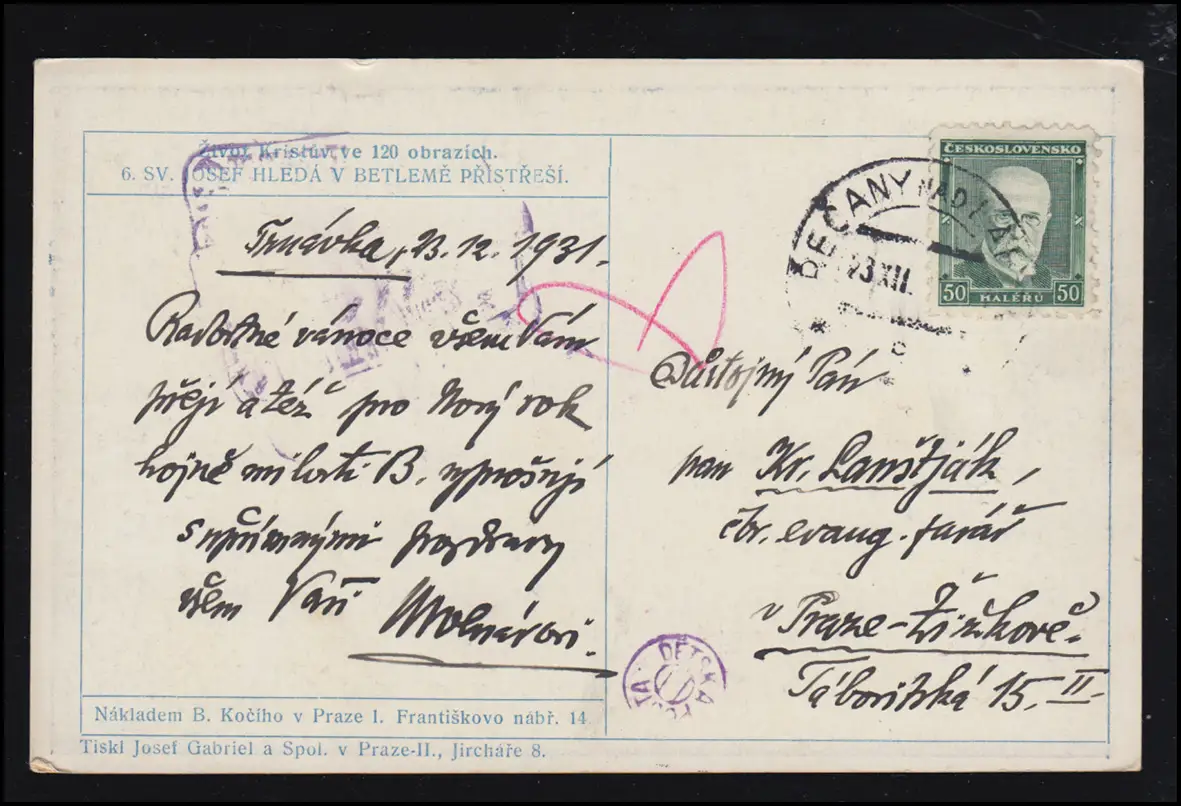 Život Kristův ve 120 obrazích.
6. SV. JOSEF HLEDÁ V BETLEMĚ PŘÍSTŘEŠÍ.
Trnávka, 23.12.1931.
Radostné vánoce všem Vám
přejí a též pro Nový rok
hojně milosti B. vyprošují
s upřímnými pozdravy
všem Vaši Molnárovi.
Nákladem B. Kočího v Praze I. Františkovo nábř. 14
Tiskl Josef Gabriel a Spol. v Praze-II., Jircháře 8.
ČESKOSLOVENSKO
50 HALÉŘŮ 50
ŘEČANY NAD LAB
23 XII.
Důstojný Pán
pan Kr. Lanštják,
čbr. evang. farář
v Praze-Žižkově.
Táboritská 15. II
DĚTSKÁ POŠTA